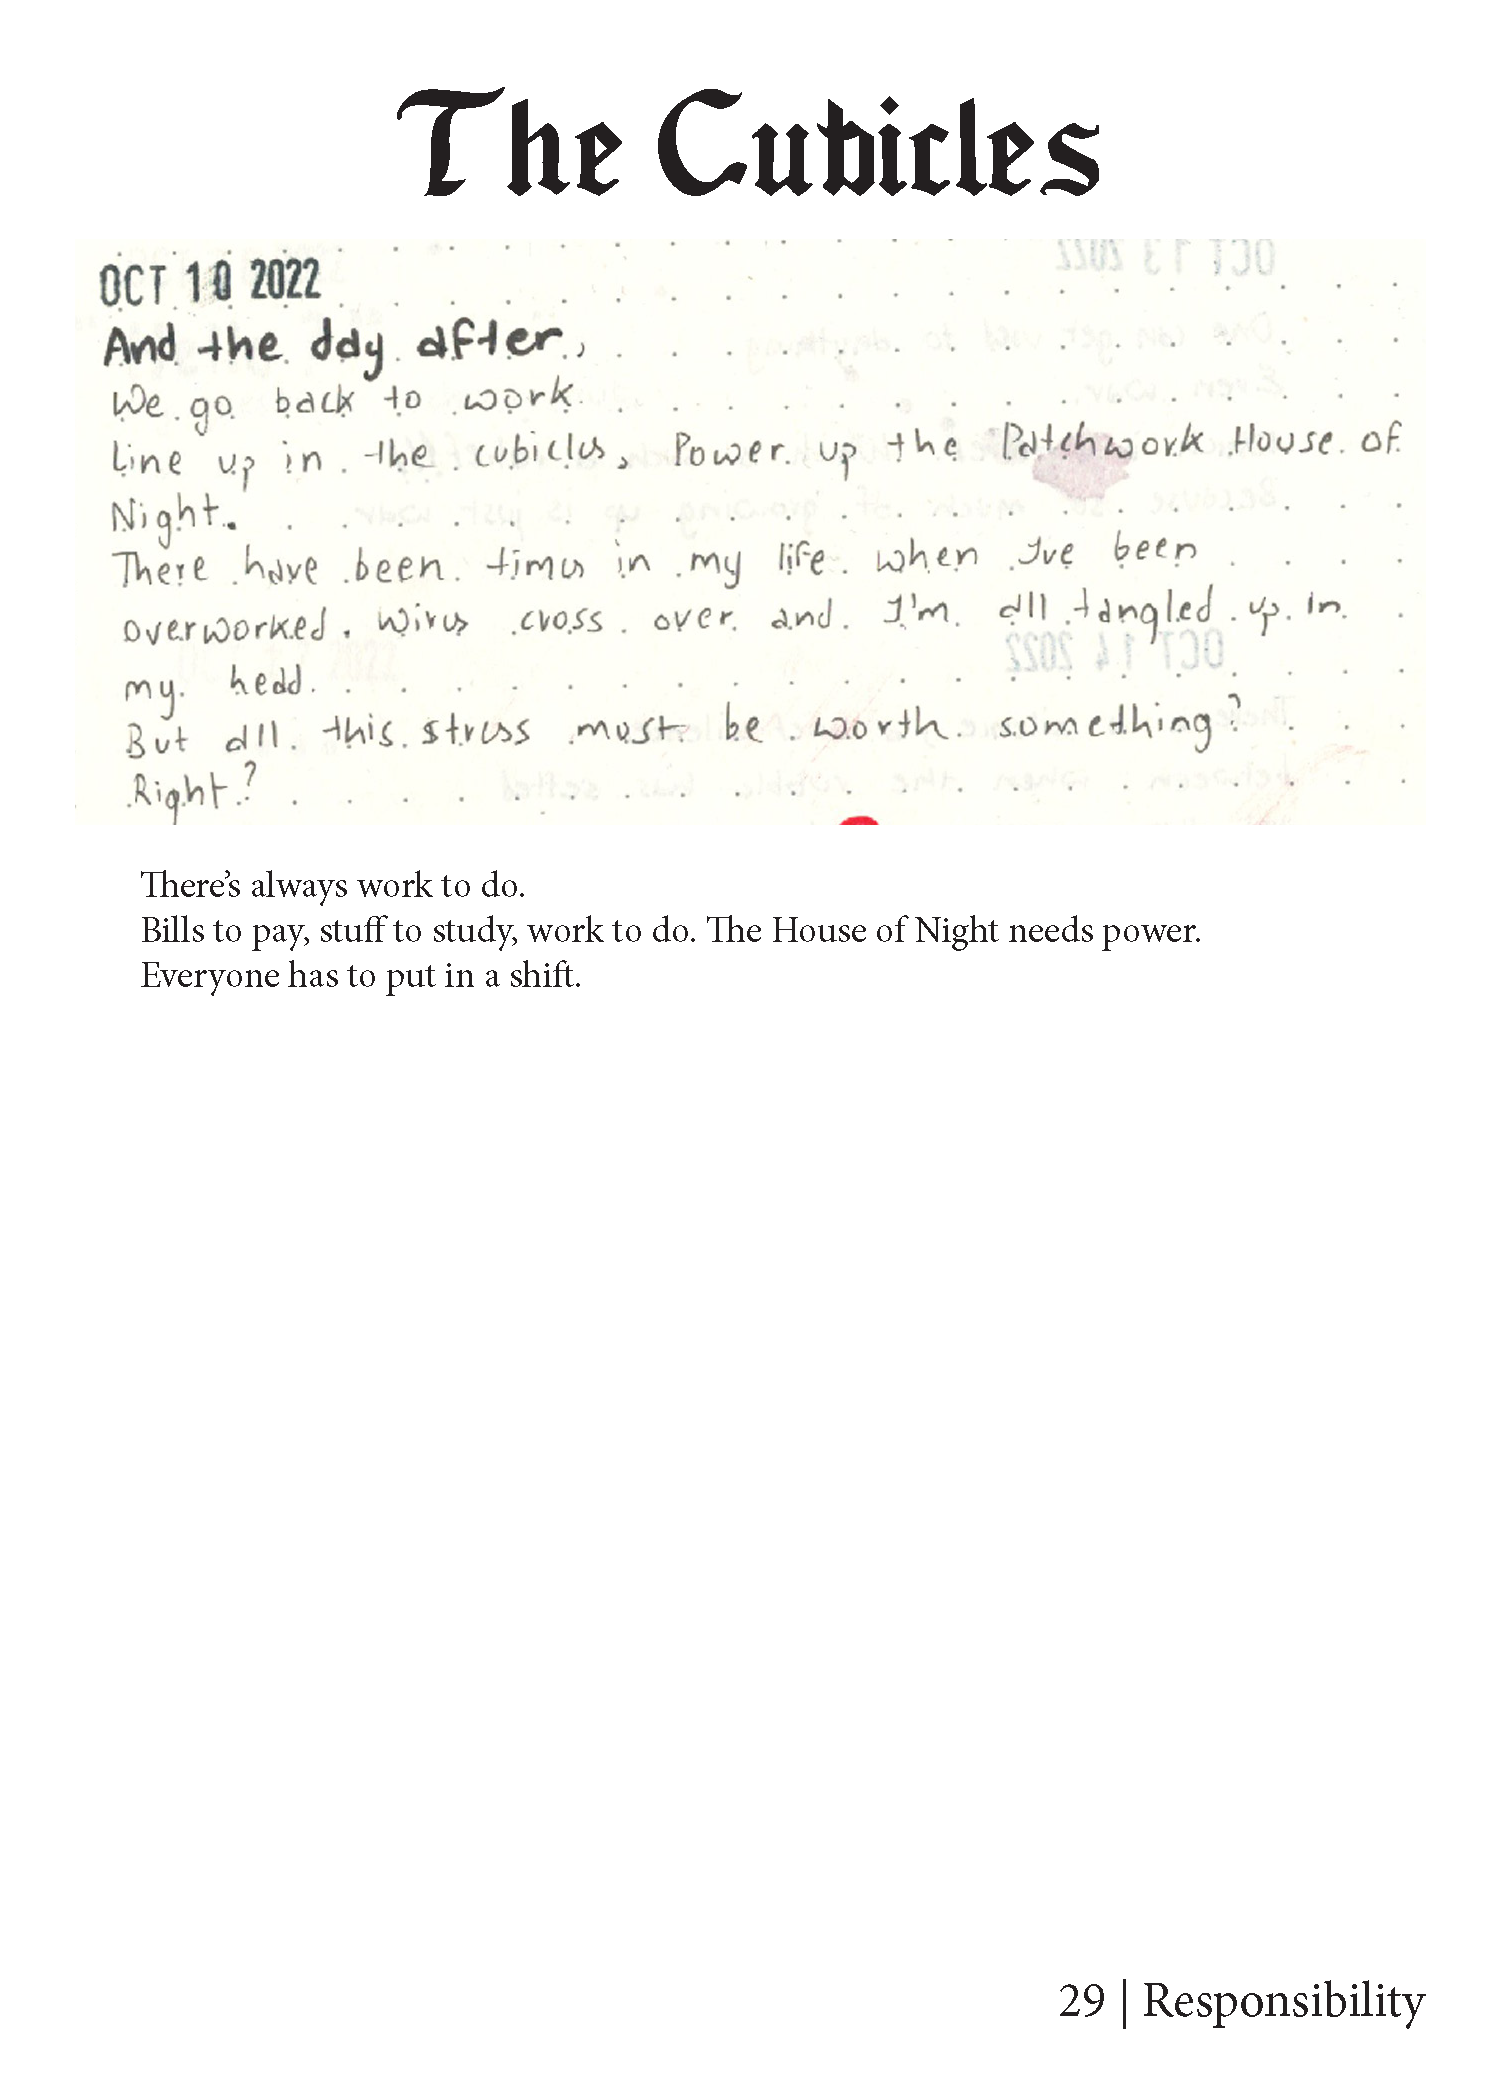 The Cubicles
OCT 10 2022
And the day after,
We go back to work.
Line up in the cubicles, Power up the Patchwork House of
Night.
There have been times in my life when I've been
overworked. Wires cross over and I'm all tangled up in
my head.
But all this stress must be worth something?
Right?
There's always work to do.
Bills to pay, stuff to study, work to do. The House of Night needs power.
Everyone has to put in a shift.
29 | Responsibility